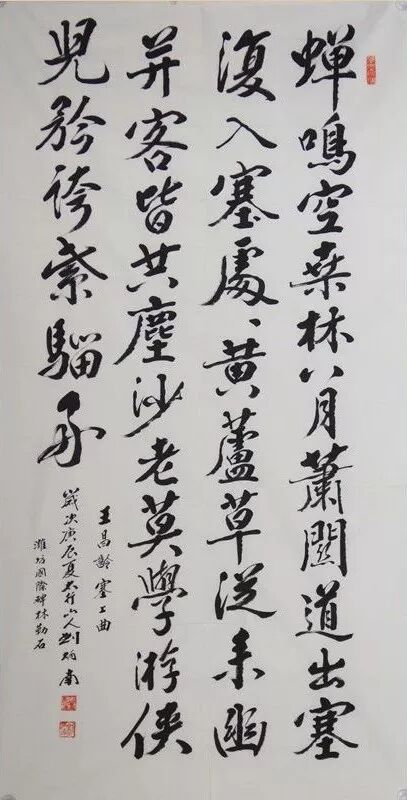 蝉鳴空桑林八月蕭関道出塞
復入塞處、黄蘆草從来幽
并客皆共塵沙老莫學游俠
児矜誇紫騮馬
王昌齡塞上曲
歲次庚辰夏太行山人劉炳南
濰坊國際碑林勒石